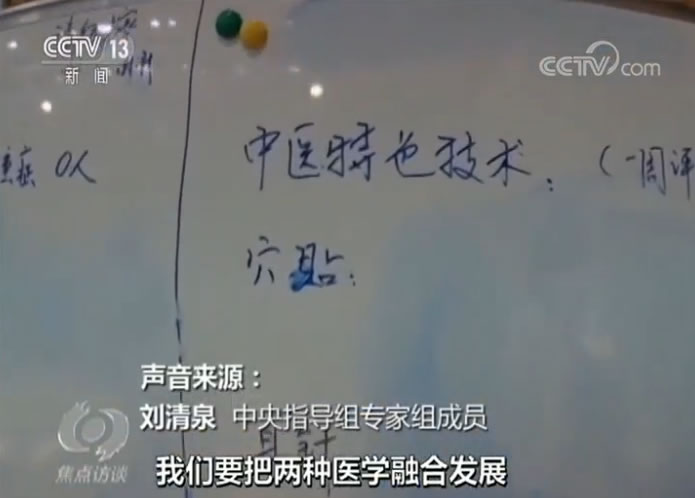 CCTV 13
新闻
CCTV.com
重症 0人
中医特色技术：（一周评
穴贴：
耳针
声音来源：
刘清泉 中央指导组专家组成员
焦点访谈
我们要把两种医学融合发展